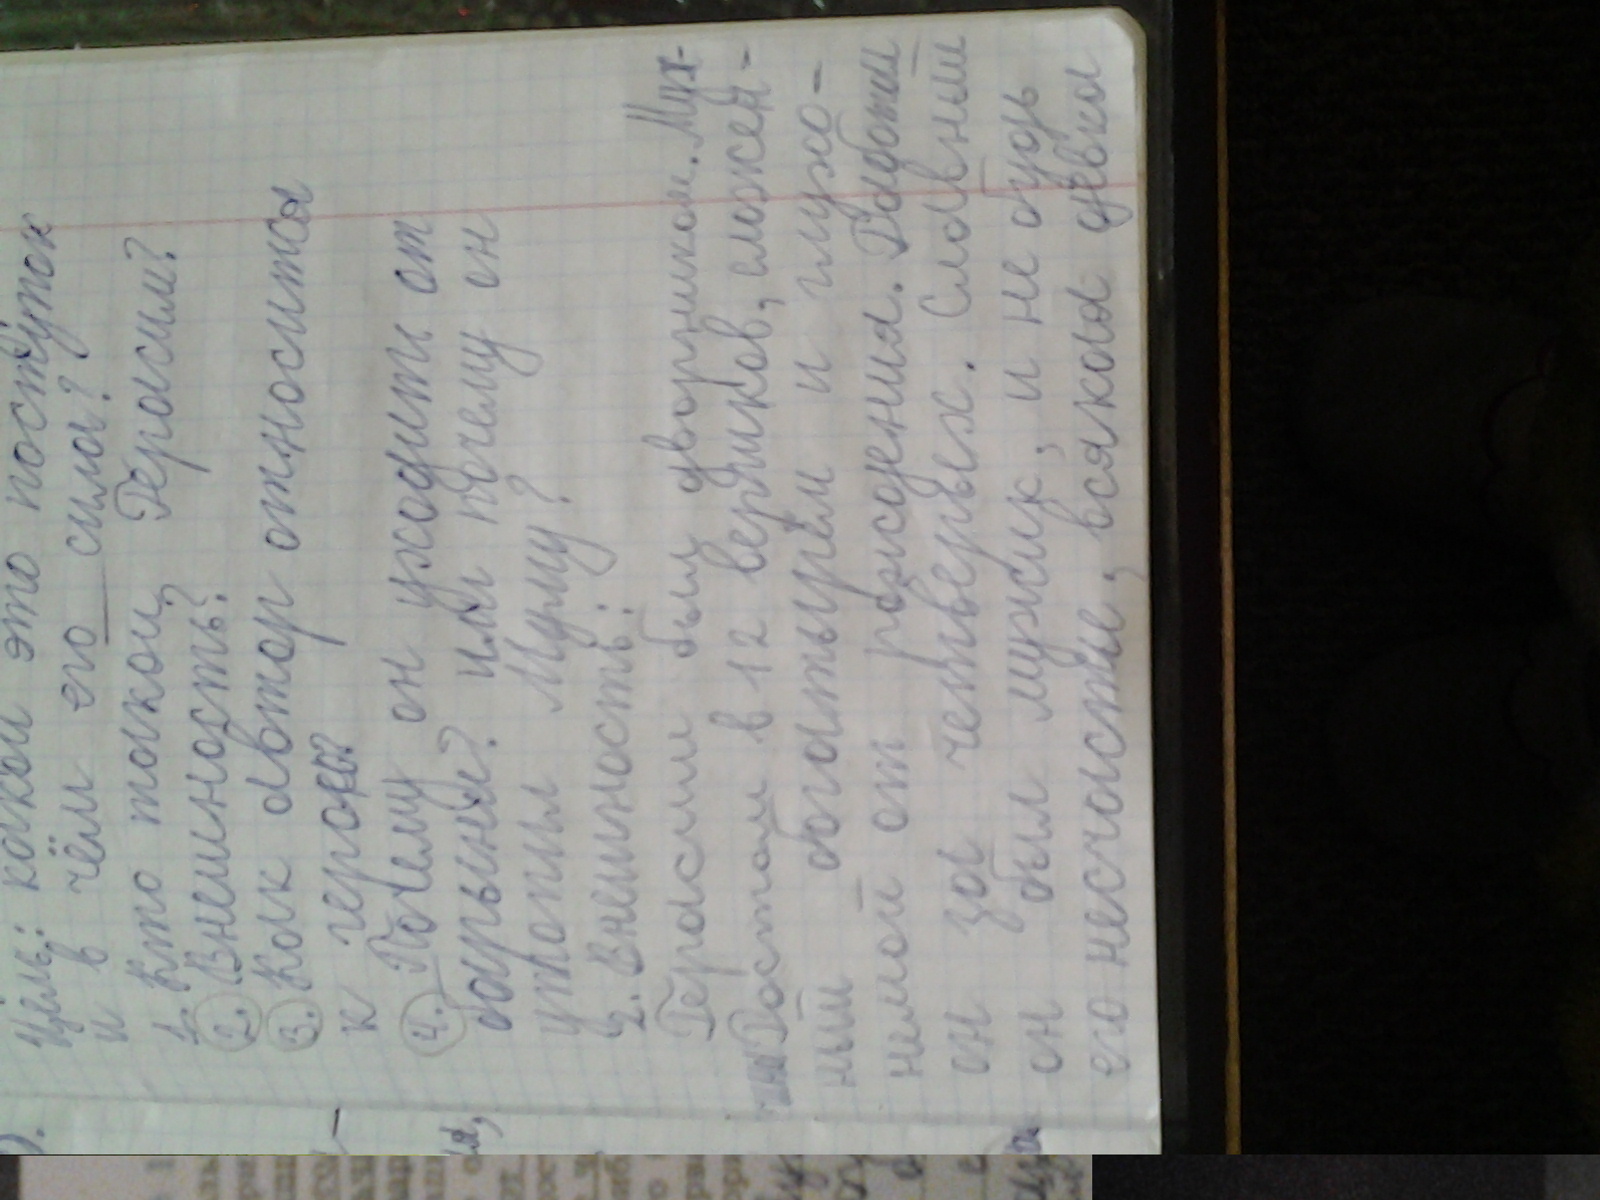 Цель: какой это поступок
и в чём его сила?
1. Кто такой Герасим?
2. Внешность?
3. Как автор относится
к герою?
4. Почему он уходить от
барыни? или почему он
утопил Муму?
2. Внешность:
Герасим был дворником. Муж-
чина Ростом в 12 вершков, сложен-
ный богатырём и глухо-
немой от рождения. Работал
он за четверых. Славный
он был мужик, и не будь
его несчастье, всякая девка